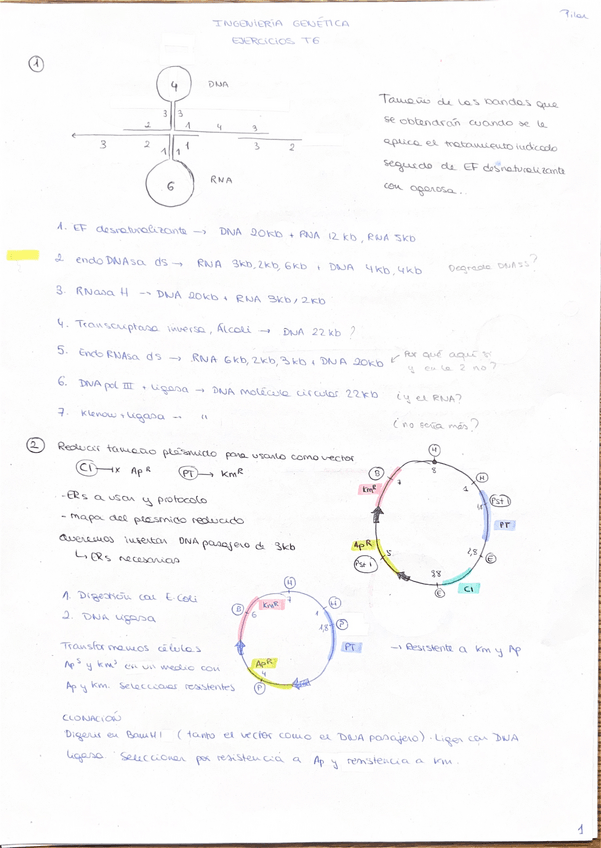 Pilar
INGENIERÍA GENÉTICA
EJERCICIOS T6
1
4 DNA
3 3
2 1 4 3
3 2 1 3 2
1 1
6 RNA
Tamaño de las bandas que
se obtendrán cuando se le
aplica el tratamiento indicado
seguido de EF desnaturalizante
con agarosa...
1. EF desnaturalizante → DNA 20kb + RNA 12kb, RNA 5kb
2. endo DNAsa ds → RNA 3kb, 2kb, 6kb + DNA 4kb, 4kb Degrada DNAss?
3. RNasa H → DNA 20kb + RNA 3kb, 2kb
4. Transcriptasa inversa, Álcali → DNA 22kb ?
5. Endo RNAsa ds → RNA 6kb, 2kb, 3kb + DNA 20kb Por qué aquí sí
y en la 2 no?
6. DNA pol III + ligasa → DNA molécula circular 22kb ¿y el RNA?
7. Klenow + ligasa → " ¿no sería más?
2 Reducir tamaño plásmido para usarlo como vector
CI Ap R PT → Km R
- ERs a usar y protocolo
- mapa del plásmido reducido
Queremos insertar DNA pasajero de 3kb
↳ ERs necesarias
H
8
B
7
Km R
H
1
Pst I
1,5
PT
Ap R
5
Pst I
E
2,8
E
3,8
CI
1. Digestión con E.Coli
2. DNA ligasa
Transformamos células
Ap S y Km S en un medio con
Ap y Km. Seleccionar resistentes
H
7
Km R
B
6
H
1
P
1,8
PT
Ap R
4
P
→ Resistente a Km y Ap
CLONACIÓN
Digerir en BamHI (tanto el vector como el DNA pasajero). Ligar con DNA
ligasa. Seleccionar por resistencia a Ap y resistencia a Km.
1